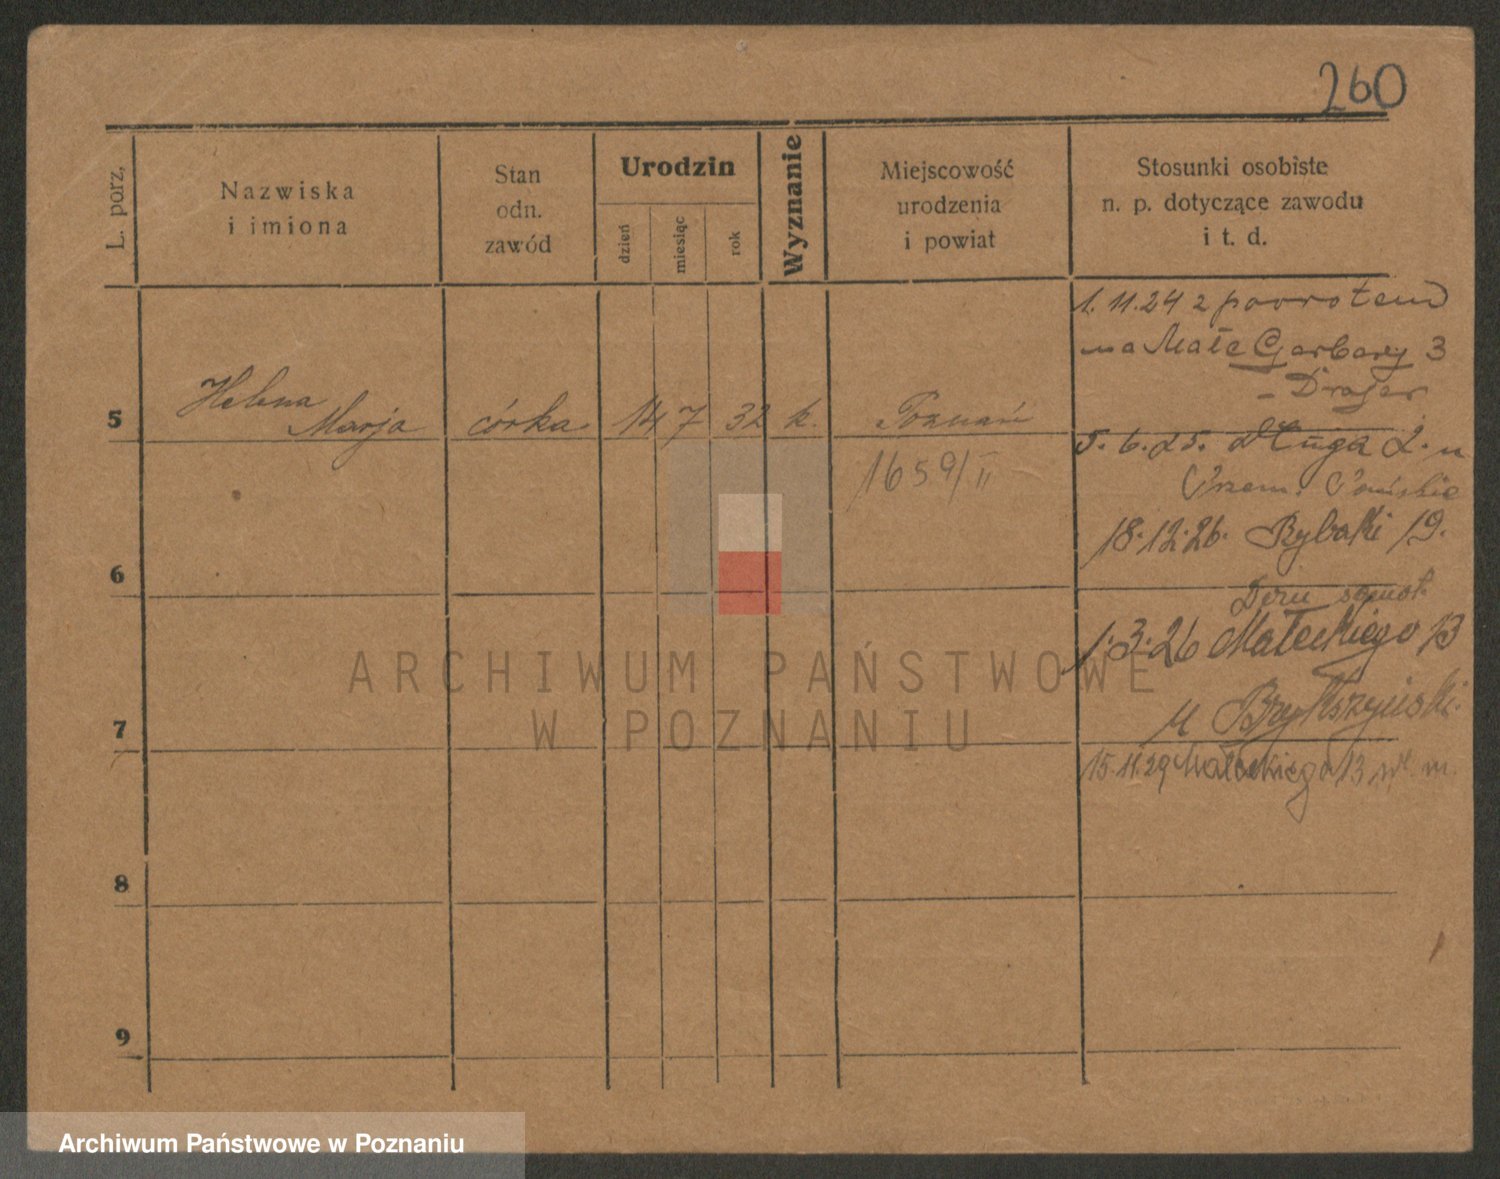 260
L. porz.
Nazwiska
i imiona
Stan
odn.
zawód
Urodzin
dzień
miesiąc
rok
Wyznanie
Miejscowość
urodzenia
i powiat
Stosunki osobiste
n. p. dotyczące zawodu
i t. d.
1. 11. 24 z powrotem
na Małe Garbary 3
- Drager
5 Helena Marja córka 14 7 32 k. Poznań
1659/II
5. 6. 25. Długa 2. u
18. 12. 26. Rybaki 19.
6
1. 3. 26 Małeckiego 13
u
7
15. 11. 29 Małeckiego 13 m.
8
9
ARCHIWUM PAŃSTWOWE
W POZNANIU
Archiwum Państwowe w Poznaniu